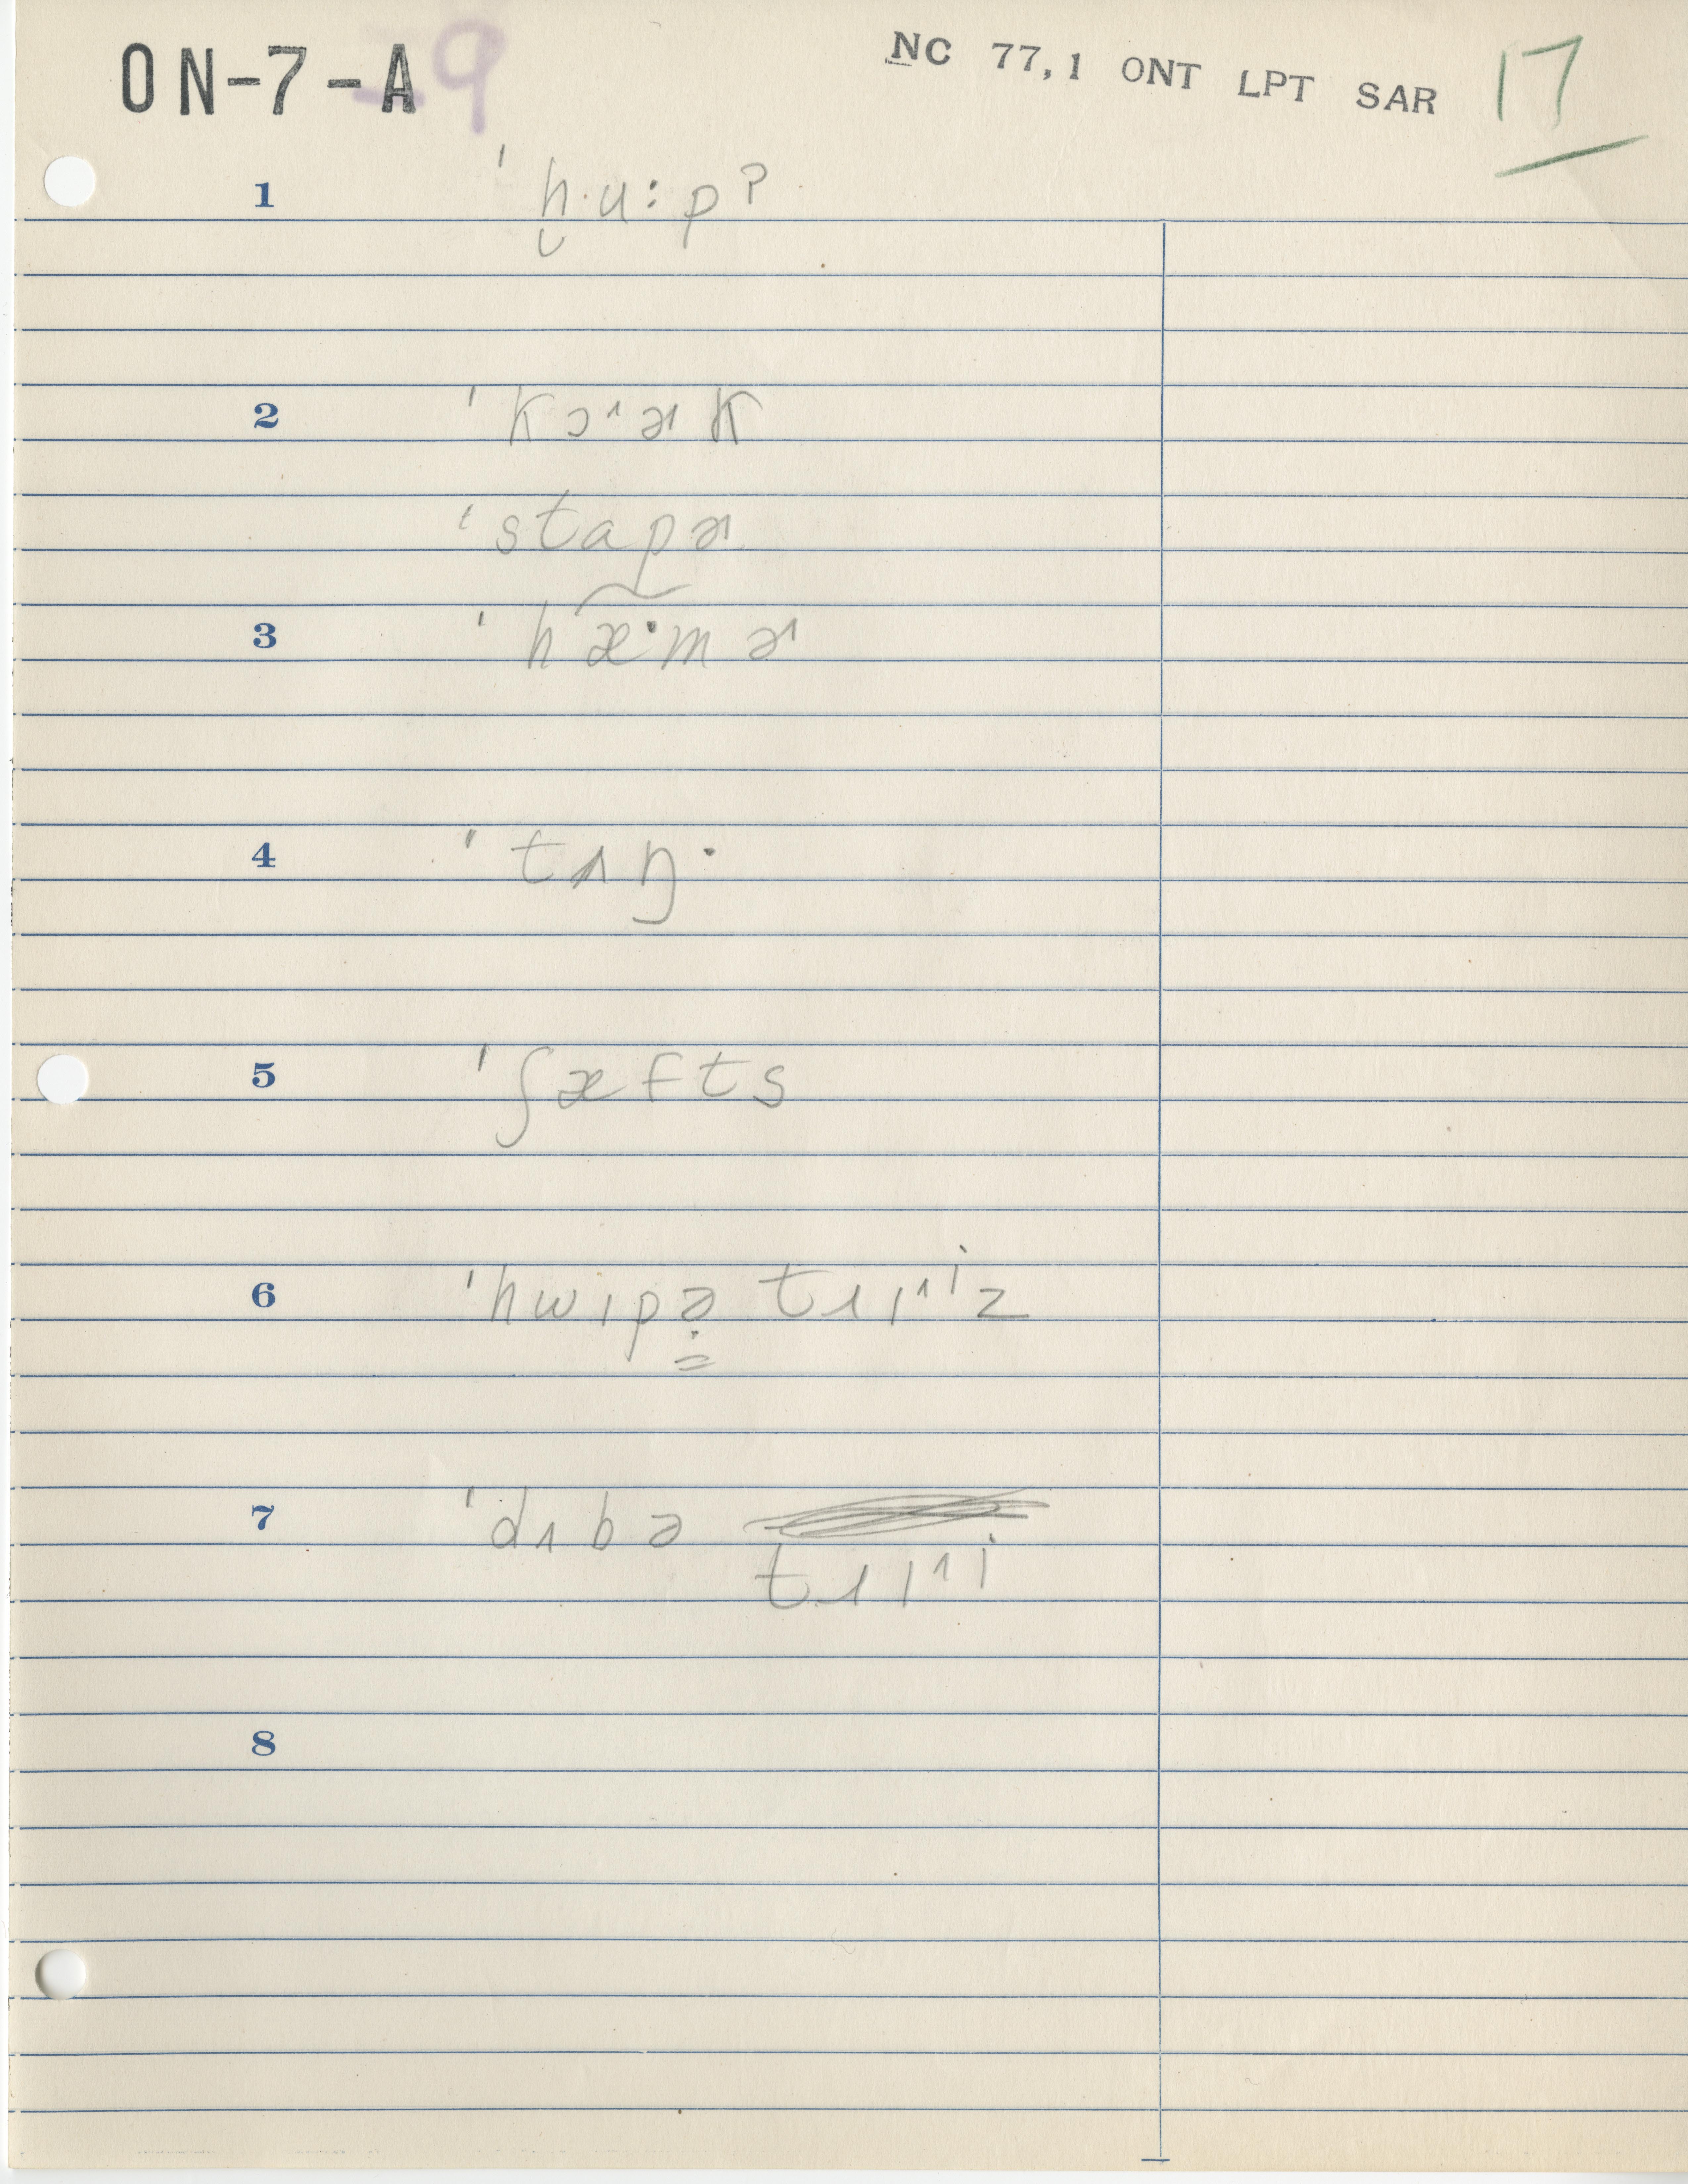 ON-7-A-9
NC 77,1 ONT LPT SAR 17
1 ˈh̬·u:pˀ
2 ˈkɔ˞ɚk
ˈstapɚ
3 ˈhæ·mɚ
4 ˈtʌŋ·
5 ˈʃæfts
6 ˈhwɪpə̣ trɪˑiz
7 ˈdʌbə
trɪˑi
8